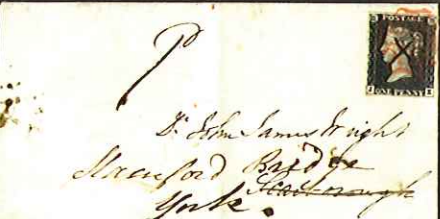 POSTAGE
J E
ONE PENNY
P
Dr. John James Wright
Stamford Bridge
Scarborough
York.